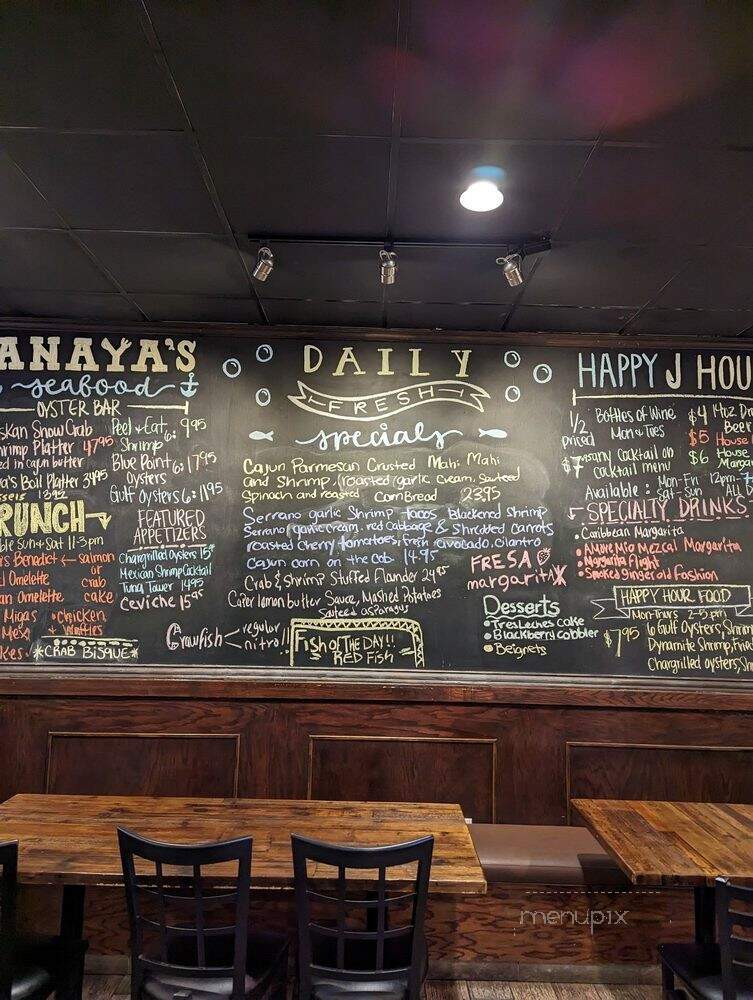 ANAYA'S
seafood
OYSTER BAR
skan Snow Crab
hrimp Platter 47.95
ed in cajun butter
a's Boil Platter 34.95
13.95
Peel & Eat 9.95
Shrimp
Blue Point 6: 17.95
Oysters
Gulf Oysters 6: 11.95
RUNCH
ble Sun & Sat 11-3pm
s Benedict ← salmon
d Omelette or
crab
an Omelette cake
Migas • chicken
Mex + waffles
kes
*CRAB BISQUE*
FEATURED
APPETIZERS
Chargrilled Oysters 15
Mexican Shrimp Cocktail
Tuna Tower 14.95
Ceviche 15.95
DAILY
FRESH
specials
Cajun Parmesan Crusted Mahi Mahi
and Shrimp, (roasted garlic cream, Sauteed
Spinach and roasted Corn Bread 23.95
Serrano garlic Shrimp tacos Blackened Shrimp
Serrano garlic cream, red cabbage & Shredded Carrots
roasted cherry tomatoes, fresh avocado, cilantro
Cajun corn on the cob 14.95
Crab & Shrimp Stuffed Flounder 24.95
Caper lemon butter Sauce, Mashed Potatoes
Sauteed asparagus
Crawfish < regular
nitro!!
Fish OF THE DAY!!
RED FISH
FRESA
margarita
Desserts
• Tres Leches cake
• Blackberry cobbler
• Beignets
HAPPY J HOU
1/2 priced Bottles of Wine
Mon & Tues
$7 any cocktail on
cocktail menu
Available: Mon-Fri 12pm-
Sat-Sun ALL
$4 14oz D
Beer
$5 House
$6 House
Marga
SPECIALTY DRINKS
• Caribbean Margarita
• Amore Mio Mezcal Margarita
• Margarita flight
• Smoked Ginger old fashion
HAPPY HOUR FOOD
Mon-Thurs 2-5pm
$7.95 6 Gulf Oysters, Shrim
Dynamite Shrimp, Fried
Chargrilled oysters, Sh
menupix